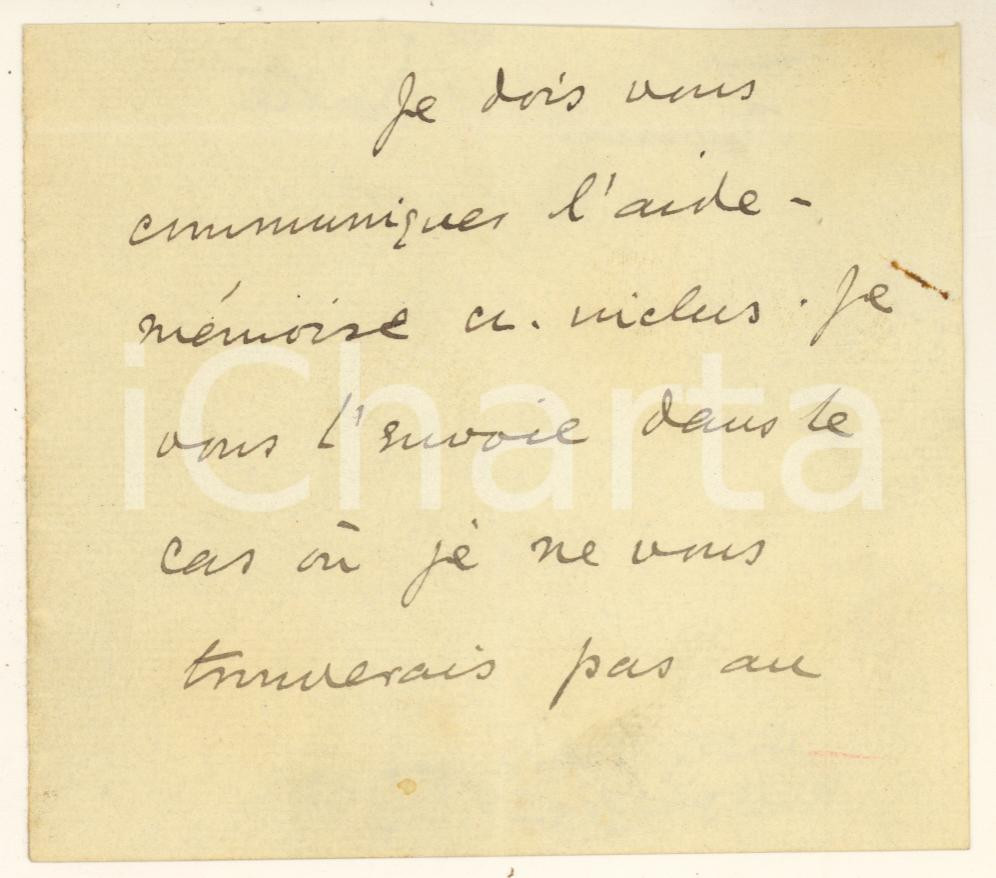 Je dois vous
communiquer l'aide-
mémoire ci-inclus. Je
vous l'envoie dans le
cas où je ne vous
trouverais pas au
iCharta